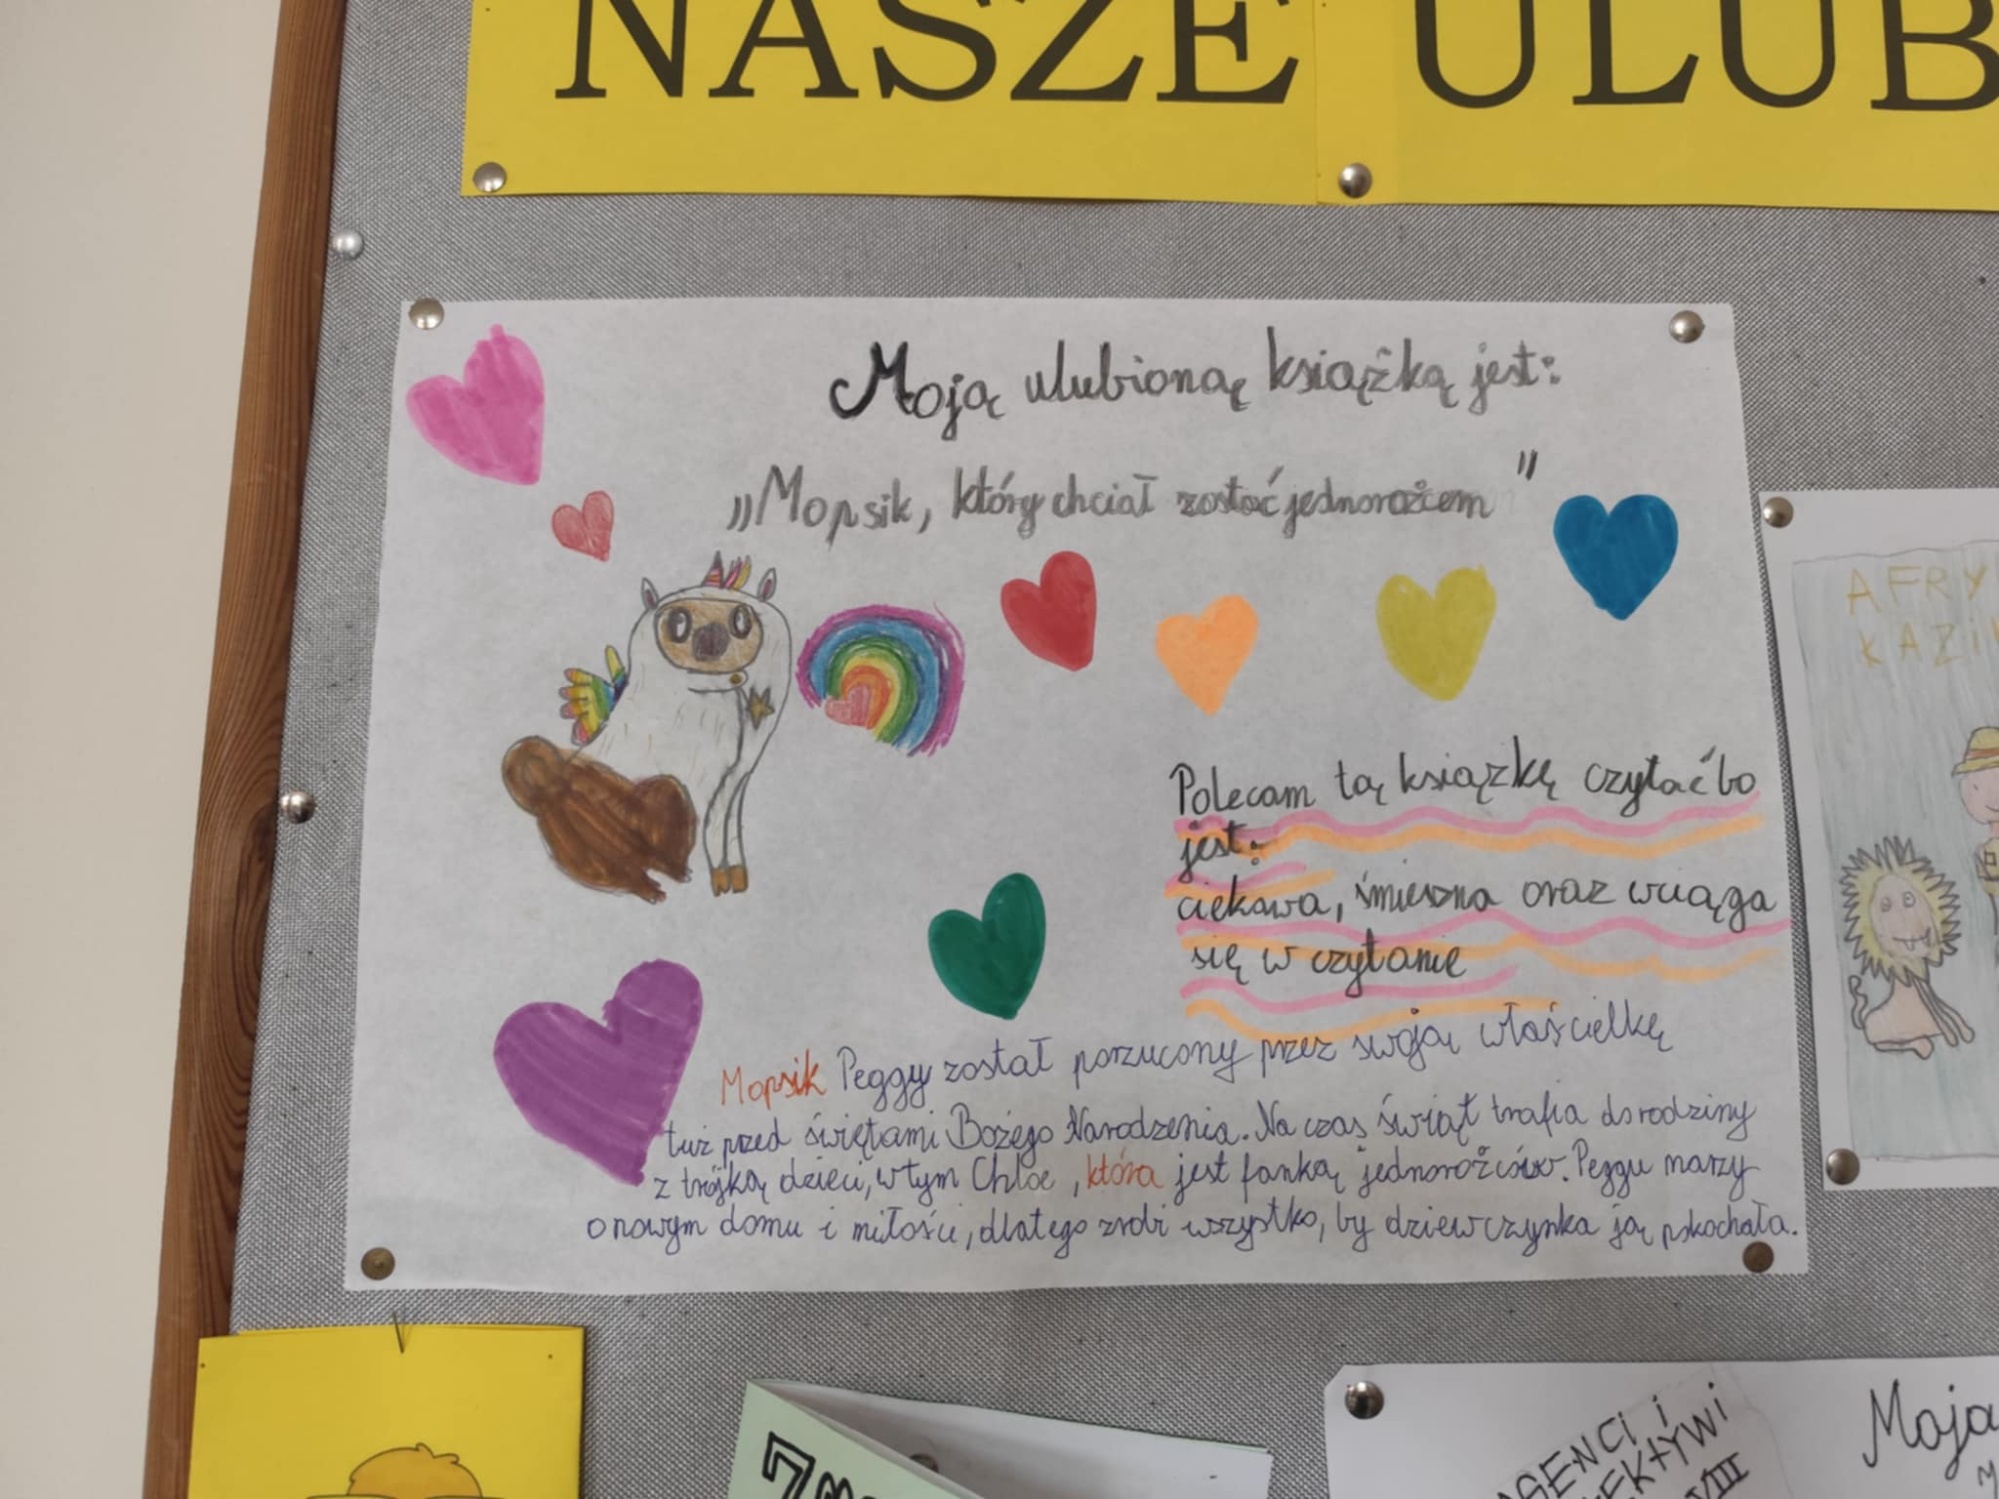 NASZE ULUB
Moją ulubioną książką jest:
„Mopsik, który chciał zostać jednorożcem"
Polecam tą książkę czytać bo
jest:
ciekawa, śmieszna oraz wciąga
się w czytanie
Mopsik Peggy został porzucony przez swoją właścielkę
tuż przed świętami Bożego Narodzenia. Na czas świąt trafia do rodziny
z trójką dzieci, w tym Chloe, która jest fanką jednorożców. Peggy marzy
o nowym domu i miłości, dlatego zrobi wszystko, by dziewczynka ją pokochała.
AFRY
KAZI
AGENCI I
EKTYWI
VIII
Moja